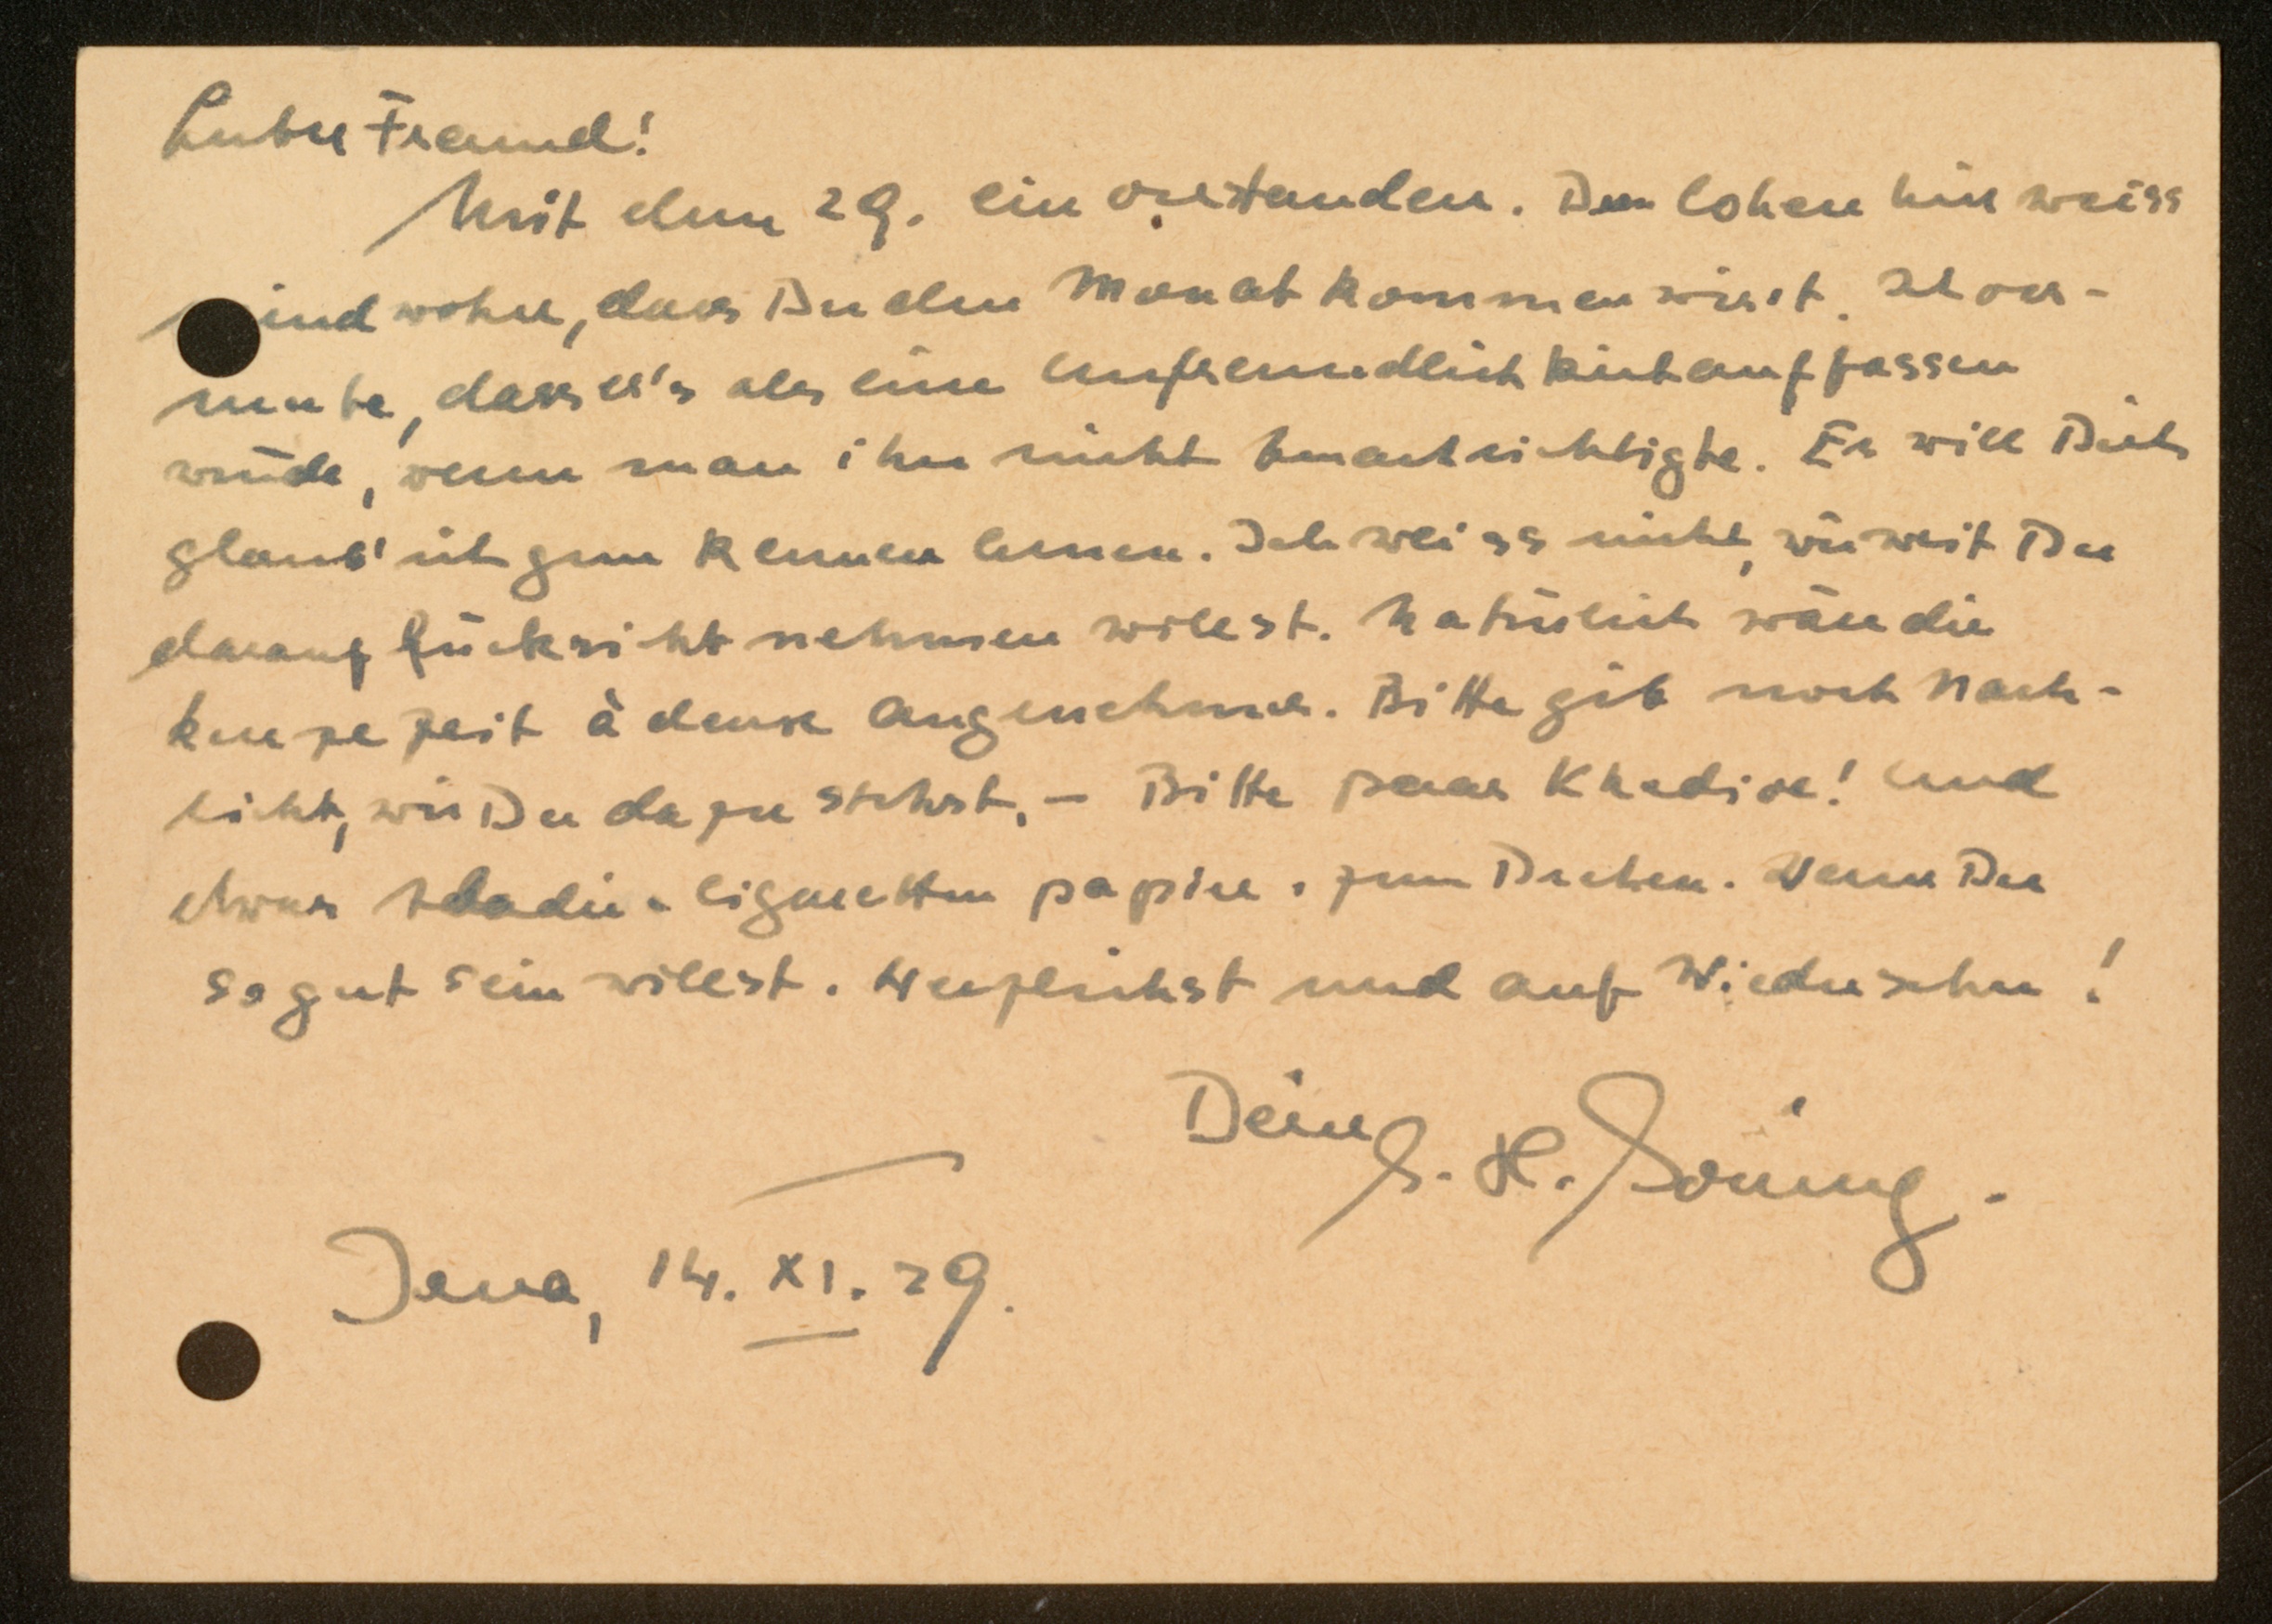 Lieber Freund!
Mit dem 29. einverstanden. Der Cohen hier weiss
irgendwoher, dass Du den Monat kommen wirst. Ich ver-
mute, dass er's als eine Unfreundlichkeit auffassen
würde, wenn man ihn nicht benachrichtigte. Er will Dich
glaub' ich gern kennen lernen. Ich weiss nicht, wieweit Du
darauf Rücksicht nehmen willst. Natürlich wäre die
kurze Zeit à deux angenehmer. Bitte gib noch Nach-
richt, wie Du dazu stehst. – Bitte paar Khedive! Und
etwas Cigaretten papier. zum Drehen. Wenn Du
so gut sein willst. Herzlichst und auf Wiedersehn!
Dein
H.
Jena, 14. XI. 29.